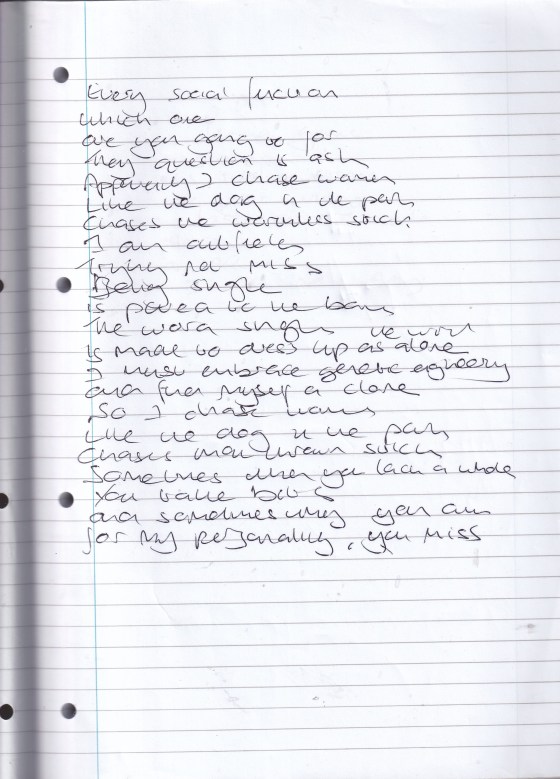 Every social function
which one
are you going to for
they question is ask
Apparently I chase women
Like the dog in the park
Chases the worthless stick
I am
Trying not miss
Being single
is
The word single the word
is made to dress up as alone
I must embrace genetic egineery
and find myself a clone
So I chase women
Like the dog in the park
Chases thrown stick
Sometimes when you lack a whole
You take bits
and sometimes when you aim
for my personality, you miss